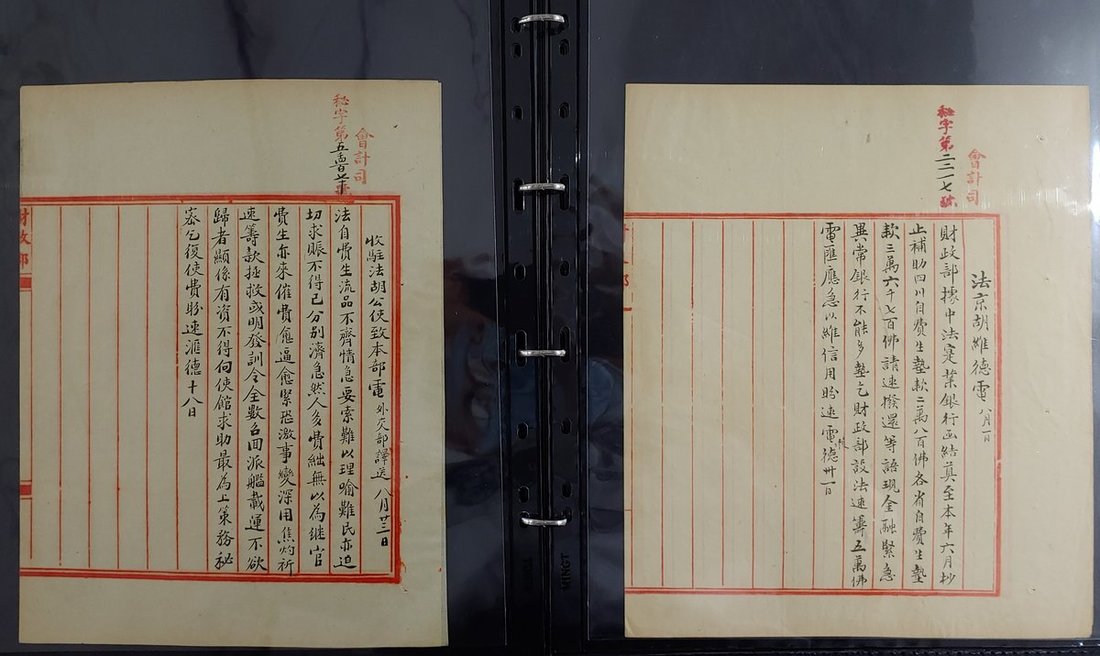 會計司
秘字第二二一七號
法京胡維德電 八月一日
財政部據中法寔業銀行函結算至本年六月抄
止補助四川自費生墊款二萬八百佛各省自費生墊
款三萬六千七百佛請速撥還等語現金融緊急
異常銀行不能多墊乞財政部設法速籌五萬佛
電匯應急以維信用盼速電德卅一日
會計司
秘字第五百七號
收駐法胡公使致本部電 外交部譯送 八月廿三日
法自費生流品不齊情急要索難以理喻難民亦迫
切求賑不得已分别濟急然人多費絀無以為継官
費生亦來催費愈逼愈緊恐激事變深用焦灼祈
速籌款拯救或明發訓令全數召回派艦載運不欲
歸者顯係有資不得向使館求助最為上策務秘
密乞復使費盼速滙德十八日
財政部
MINGT